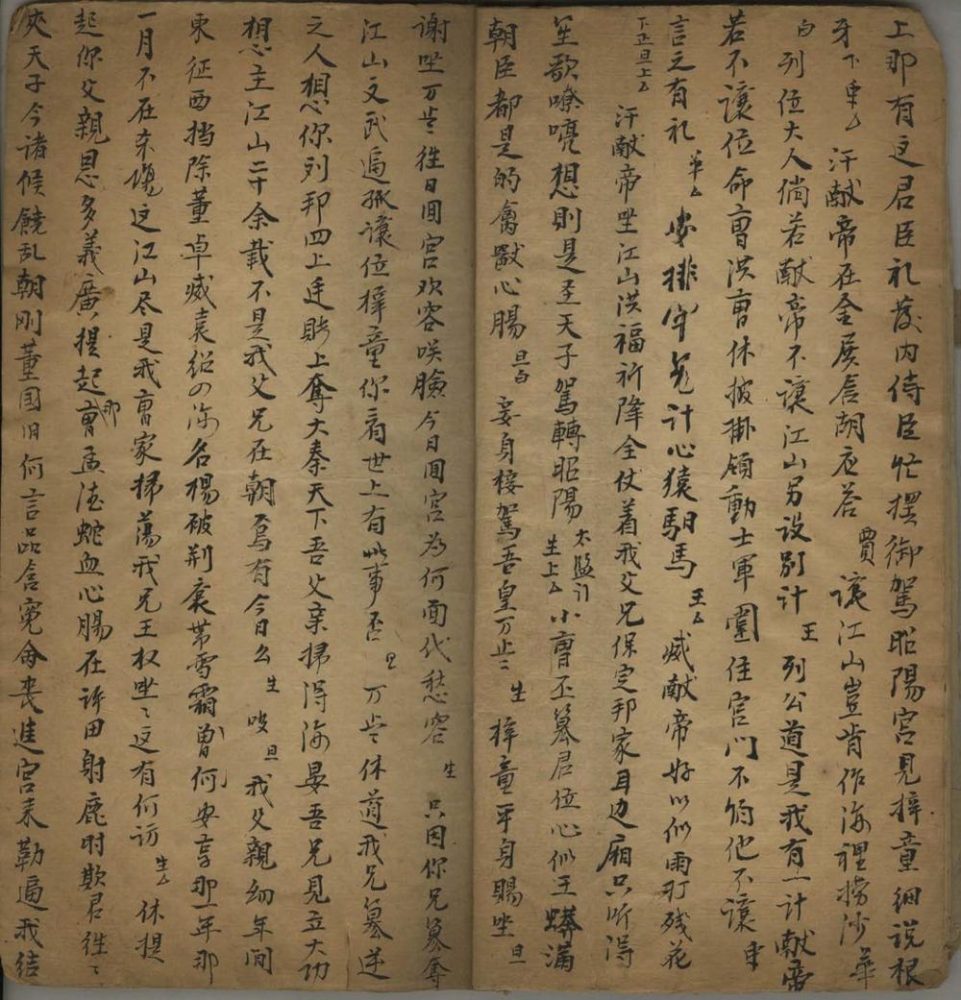 上那有这君臣礼废内侍臣忙摆御驾昭阳宫见梓童细说根
牙下 汗献帝在金展含胡应答 贾 让江山岂肯作海裡捞沙 华
白 列位大人倘若献帝不让江山另设别计 王 列公道是我有一计献帝
若不让位命曹洪曹休披掛领動士軍圍住宫门不怕他不让
言之有礼 安排牢笼计心猿馬 王 威献帝好以似雨打残花
下正旦上 汗献帝坐江山洪福祈降全仗着我父兄保定邦家耳边廂只听得
笙歌嘹喨想则是圣天子駕轉昭陽 太监 生上 小曹丕篡君位心似王蟒满
朝臣都是的禽獸心腸 旦白 妾身接駕吾皇万岁 生 梓童平身賜坐 旦
谢坐万岁往日回宫欢容咲臉今日回宫为何面代愁容 生 只因你兄篡夺
江山文武逼孤讓位梓童你看世上有此事否 旦 万岁休道我兄篡逆
之人想你列邦四上奪大秦天下吾父亲掃得海晏吾兄見立大功
想主江山二十余载不是我父兄在朝焉有今日么 生 旦 我父親幼年间
東征西挡除董卓威袁绍四海名楊破荆襄带雪霜曾何安享那一年那
一月不在杀塲这江山尽是我曹家掃荡我兄王权坐坐这有何访 生 休提
起你父親恩多義廣提起那曹孟德蛇血心腸在許田射鹿时欺君往往
挾天子令诸候饒乱朝刚董国旧何言品含冤命丧進宫来勒逼我结